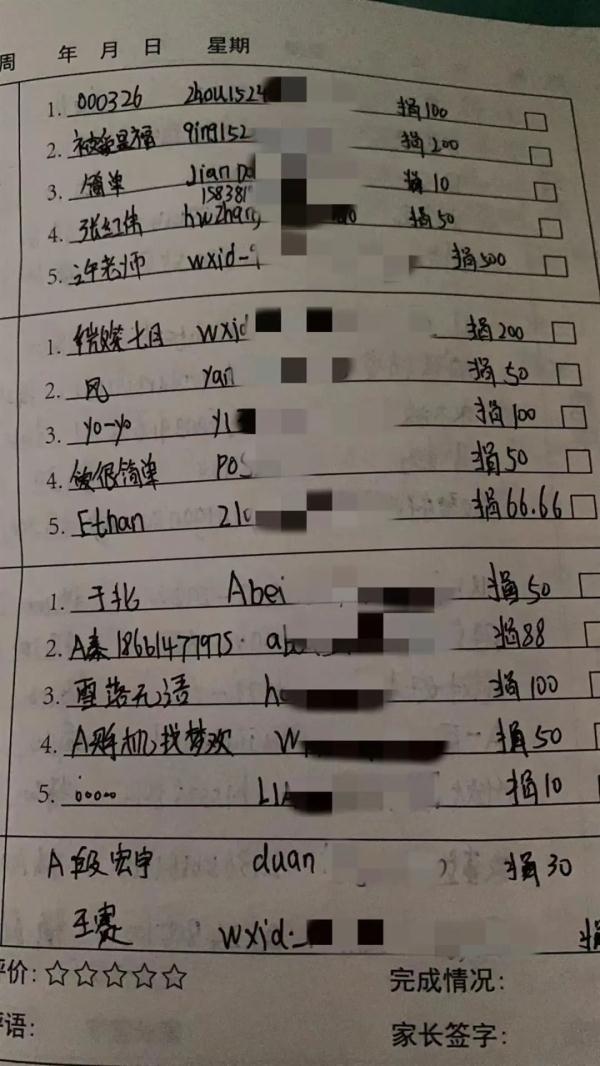 周 年 月 日 星期
1. 000326 zhou1524 捐100
2. 被 幸福 qing152 捐200
3. 简单 Jian 捐10
158381
4. 张红伟 hwzhang 捐50
5. 许老师 wxid- 捐500
1. 七月 wxid 捐200
2. 风 yan 捐50
3. yo-yo yl 捐100
4. 做很简单 pos 捐50
5. Ethan 捐66.66
1. 于北 Abei 捐50
2. A秦18661477975 ab 捐88
3. 雪落无语 h 捐100
4. A购机找梦欢 w 捐50
5. 捐10
A段宏宇 duan 捐30
王赛 wxid- 捐
评价:☆☆☆☆☆ 完成情况:
评语: 家长签字: